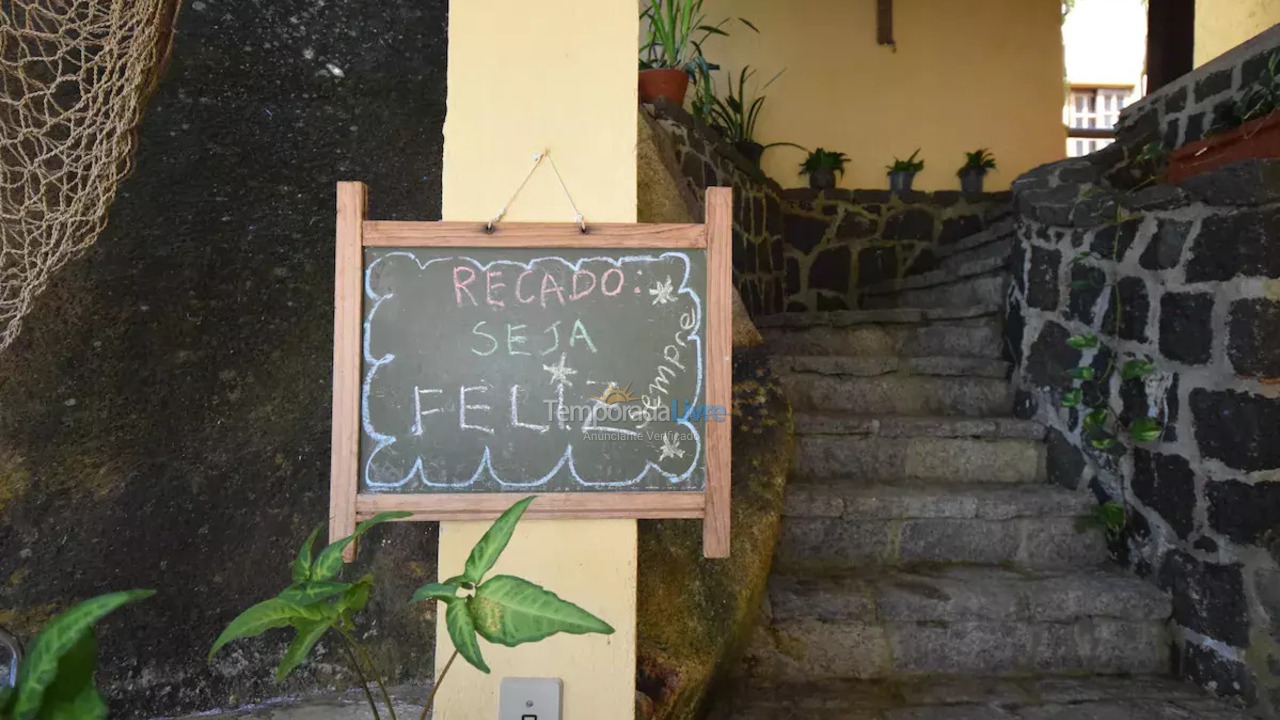 RECADO:
SEJA
FELIZ
sempre
TemporadaLivre
Anunciante Verificado